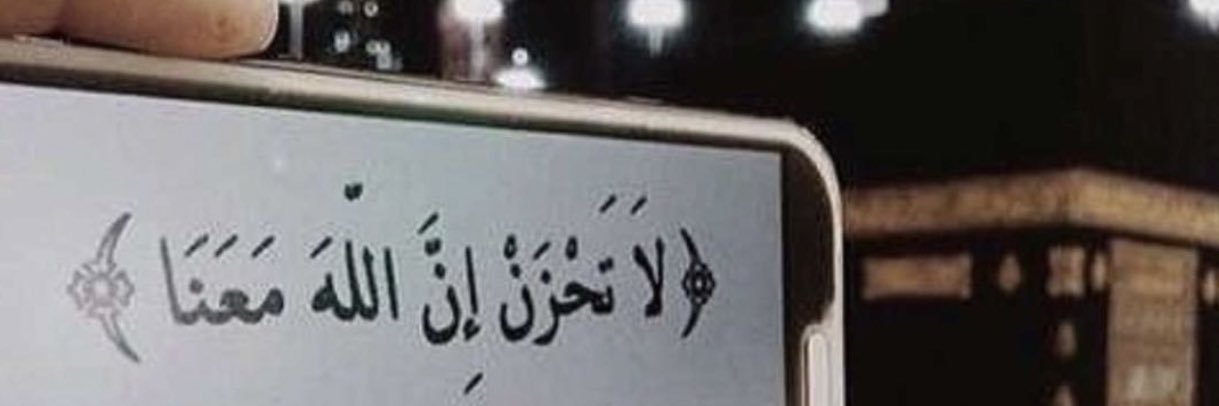 ﴿لَا تَحْزَنْ إِنَّ اللَّهَ مَعَنَا﴾